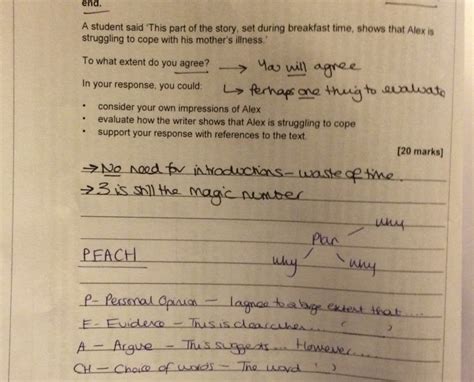 end.
A student said 'This part of the story, set during breakfast time, shows that Alex is
struggling to cope with his mother's illness.'
To what extent do you agree? → You will agree
In your response, you could: ↳ Perhaps one thing to evaluate
• consider your own impressions of Alex
• evaluate how the writer shows that Alex is struggling to cope
• support your response with references to the text.
[20 marks]
→ No need for introductions – waste of time.
→ 3 is still the magic number
why
Plan
PEACH why why
P - Personal Opinion – I agree to a large extent that....
E - Evidence – This is clear when.... ' '
A - Argue – This suggests... However....
CH - Choice of words – The word ' '